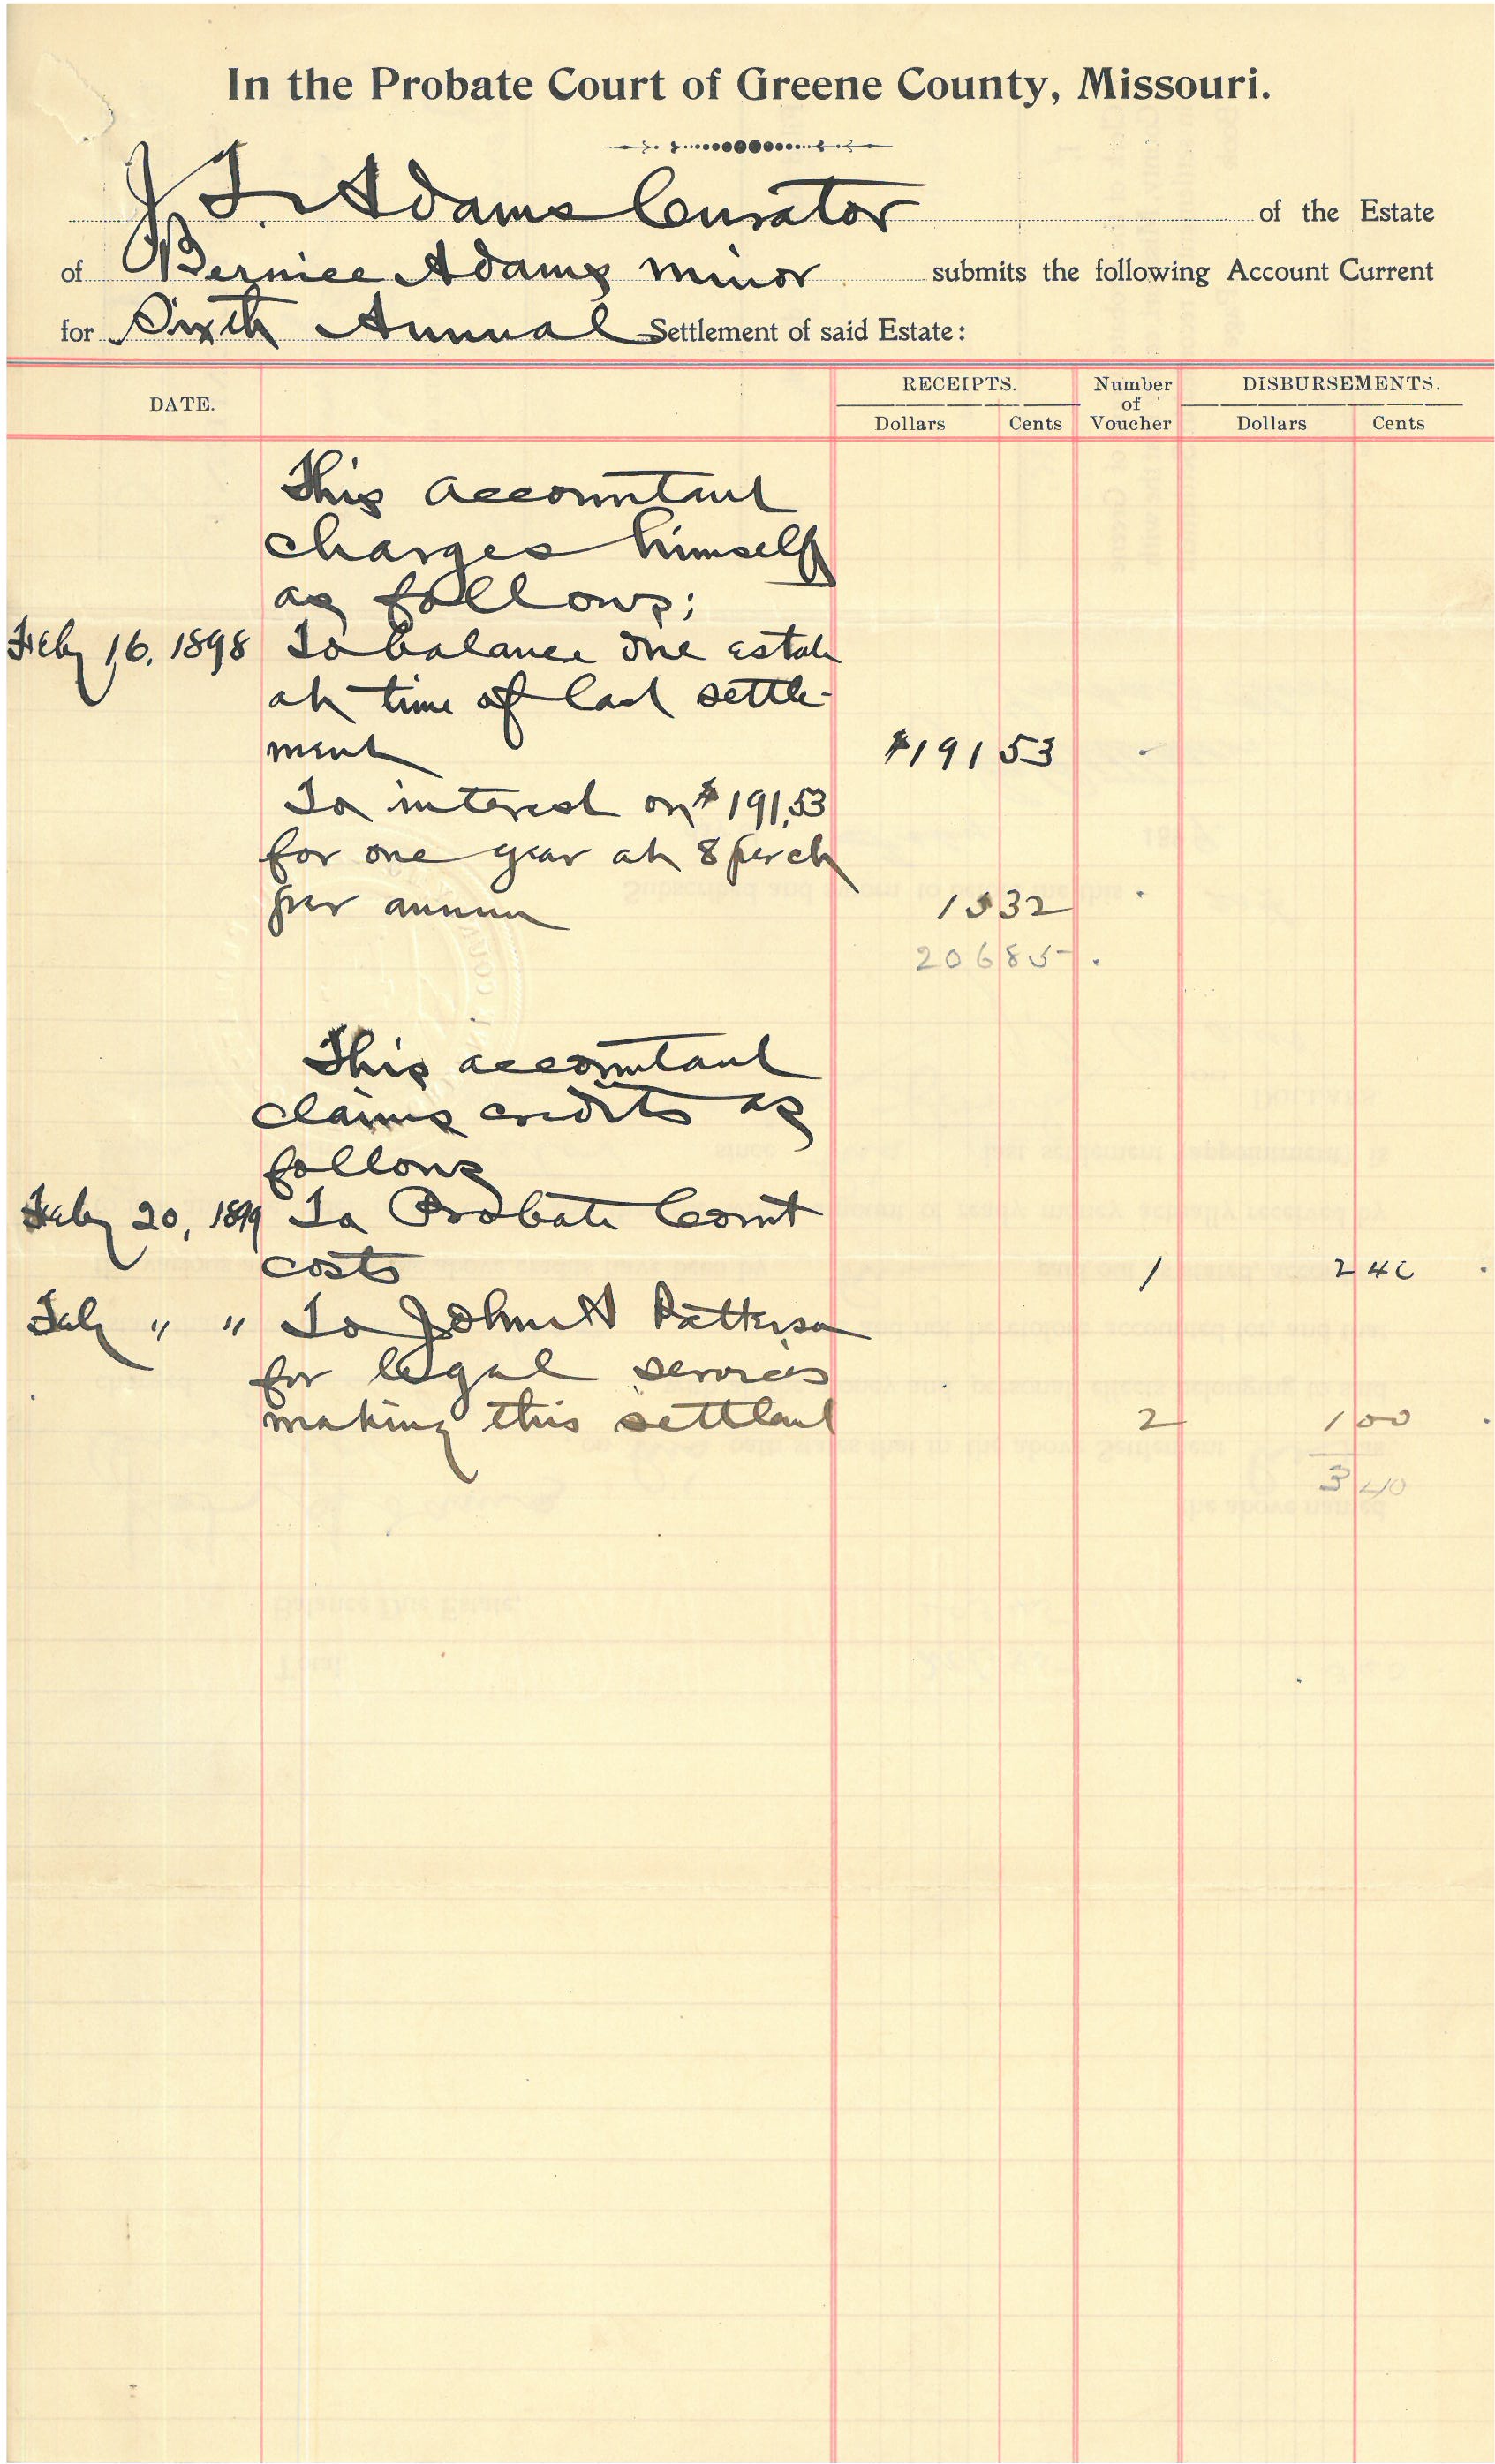 In the Probate Court of Greene County, Missouri.
J. T. Adams Curator of the Estate
of Bernice Adams minor submits the following Account Current
for Sixth Annual Settlement of said Estate:
DATE. RECEIPTS. Number of Voucher DISBURSEMENTS.
Dollars Cents Dollars Cents
This accountant
charges himself
as follows;
Feby 16, 1898 To balance due estate
at time of last settle-
ment $191 53
To interest on $191,53
for one year at 8 per ct
per annum 15 32
206 85
This accountant
claims credits as
follows
Feby 20, 1899 To Probate Court
costs 1 2 40
Feby " " To John A Patterson
for legal services
making this settlement 2 1 00
3 40